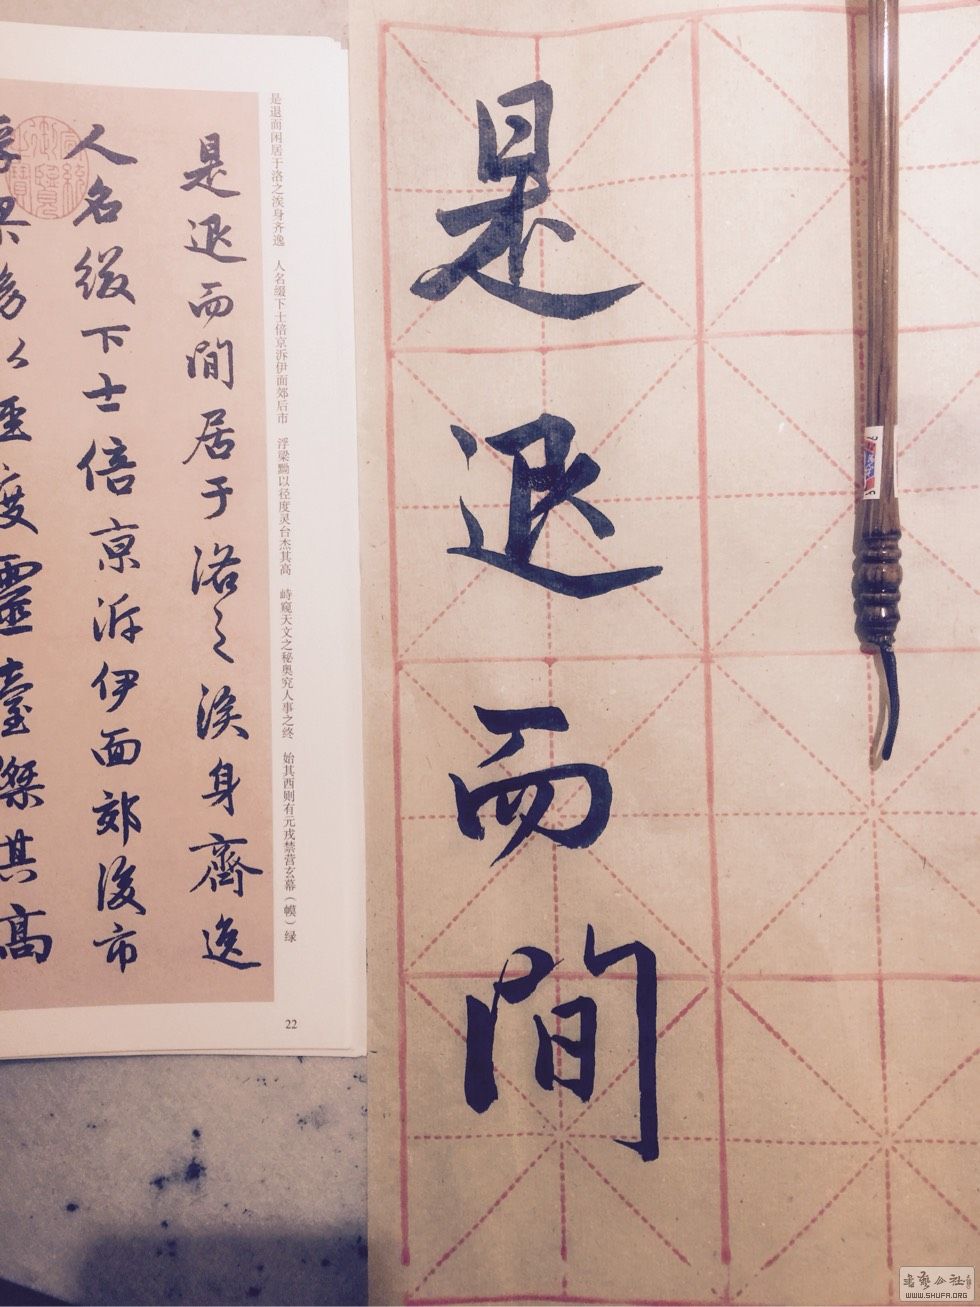 是退而間
是退而间居于洛之涘身齐逸 人名缀下士倍京泝伊面郊后市 浮梁黝以径度灵台杰其高 峙窥天文之秘奥究人事之终 始其西则有元戎禁营玄幕（幙）绿
是退而間居于洛之涘身齊逸
人名綴下士倍京泝伊面郊後市
浮梁黝以徑度靈臺傑其高
22
書藝公社
WWW.SHUFA.ORG